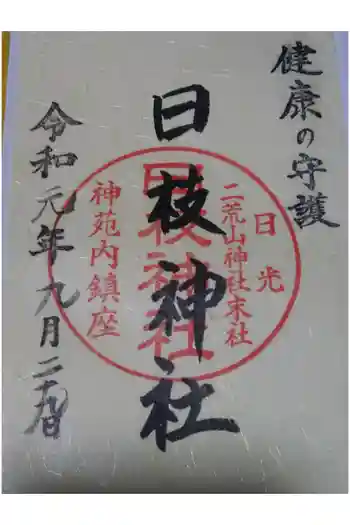 健康の守護
日枝神社
令和元年九月二十九日
日光
二荒山神社末社
日枝神社
神苑内鎮座